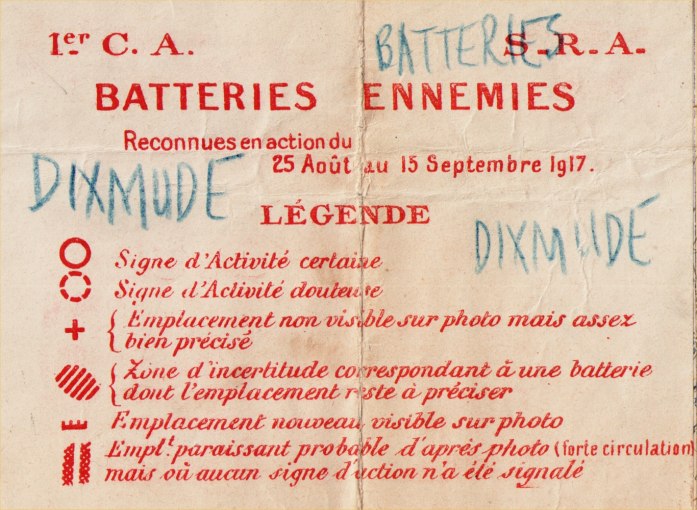 1er C. A.
BATTERIES
S.R.A.
BATTERIES ENNEMIES
Reconnues en action du
25 Août au 15 Septembre 1917.
DIXMUDE
LÉGENDE
DIXMUDE
Signe d'Activité certaine
Signe d'Activité douteuse
Emplacement non visible sur photo mais assez
bien précisé
Zone d'incertitude correspondant à une batterie
dont l'emplacement reste à préciser
Emplacement nouveau visible sur photo
Emplt. paraissant probable d'après photo (forte circulation)
mais où aucun signe d'action n'a été signalé